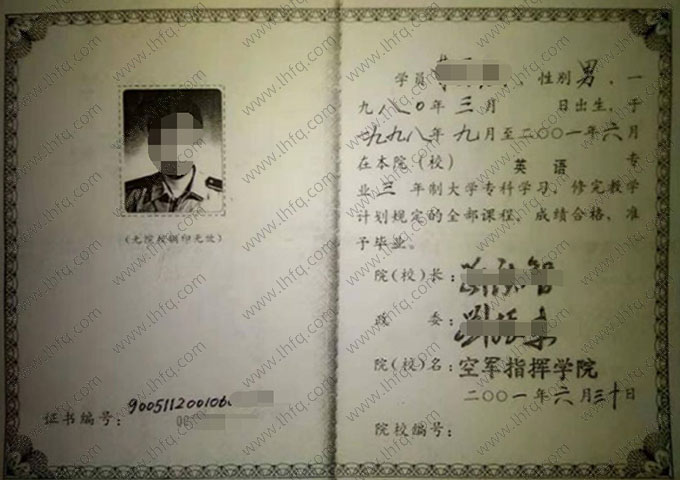 (无院校钢印无效)
证书编号: 90051120010
学员 性别 男, 一
九八〇年 三 月 日出生, 于
一九九八年 九 月至二〇〇一年 六 月
在本院(校) 英语 专
业 三 年制大学专科学习, 修完教学
计划规定的全部课程, 成绩合格, 准
予毕业。
院(校)长:
政 委:
院(校)名: 空军指挥学院
二〇〇一年 六 月 三十 日
院校编号:
www.lhfq.com